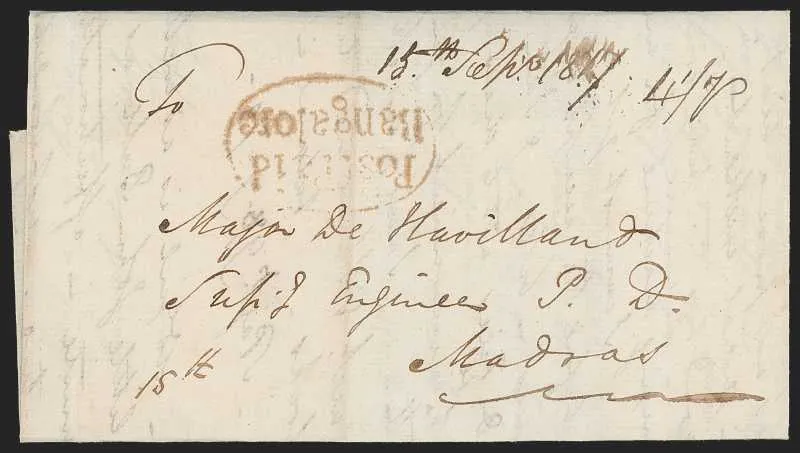 15th Sepr 18
To
Post Paid
Bangalore
Major De Havilland
Supg Engineer P. D.
Madras
15th